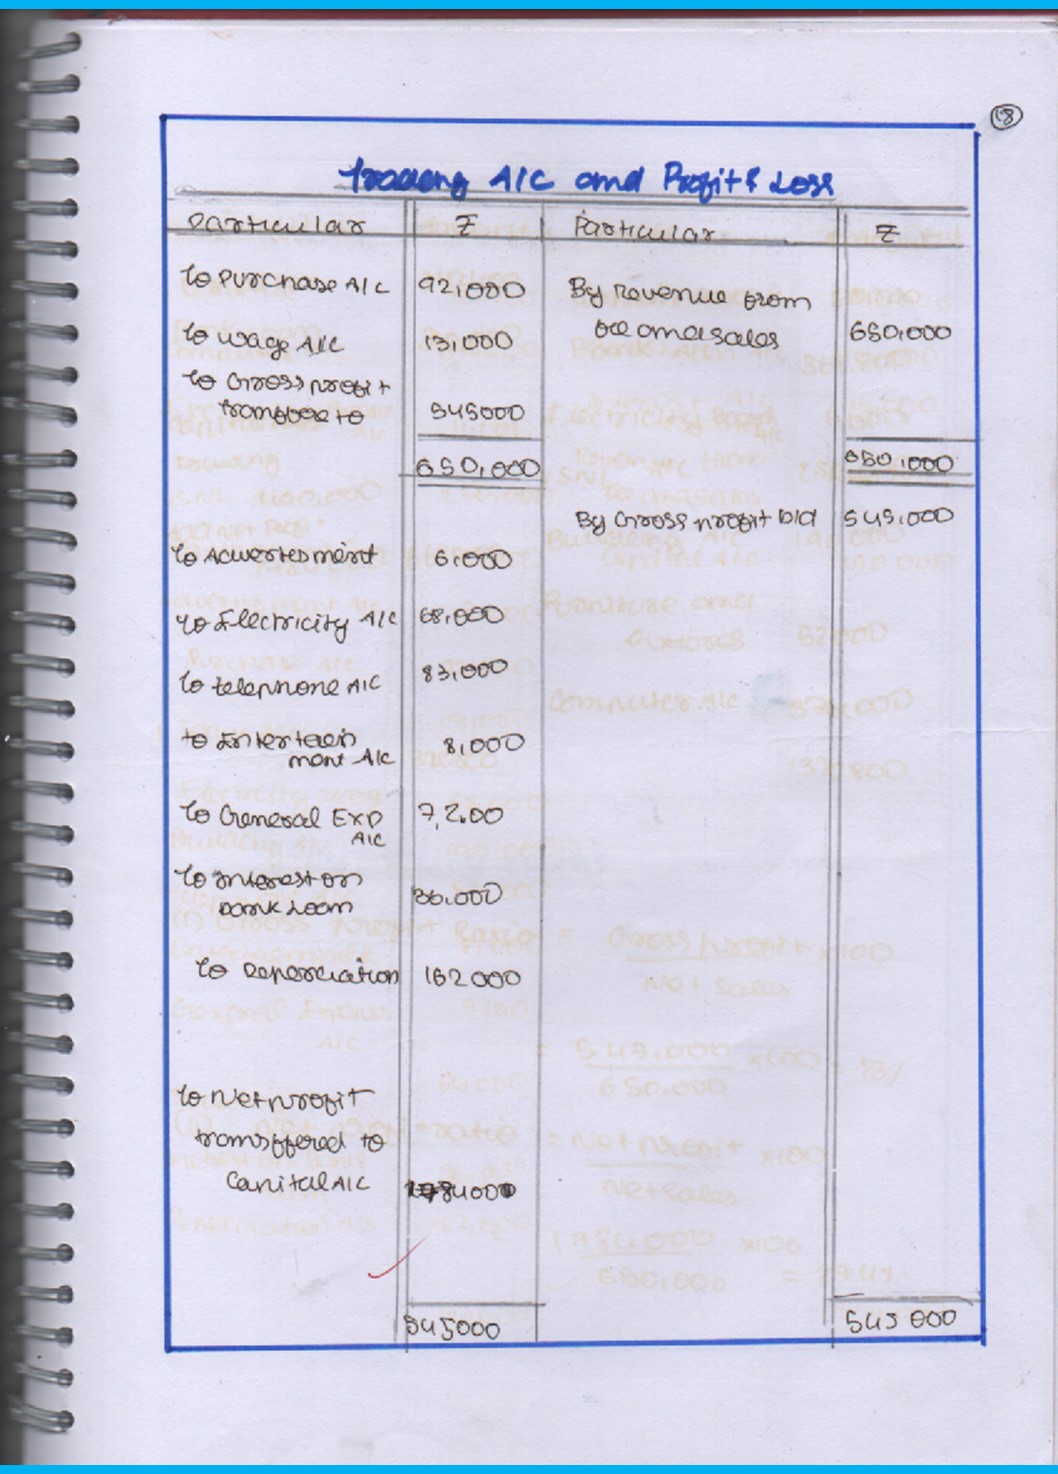 18
Trading A/C and Profit & Loss
Particular ₹ Particular ₹
To Purchase A/C 92,000 By revenue from
sales 650,000
To wage A/C 13,000
To Gross profit
transfore to 545000
650,000 650,000
By Gross profit b/d 545,000
To Advertesment 6,000
To Electricity A/C 68,000
To telephone A/C 83,000
to Entertain
ment A/C 8,000
To General Exp 7,200
A/C
To interest on
Bank Loan 36,000
To Depreciation 162000
To Net profit
transffered to
Capital A/C
545000 545000